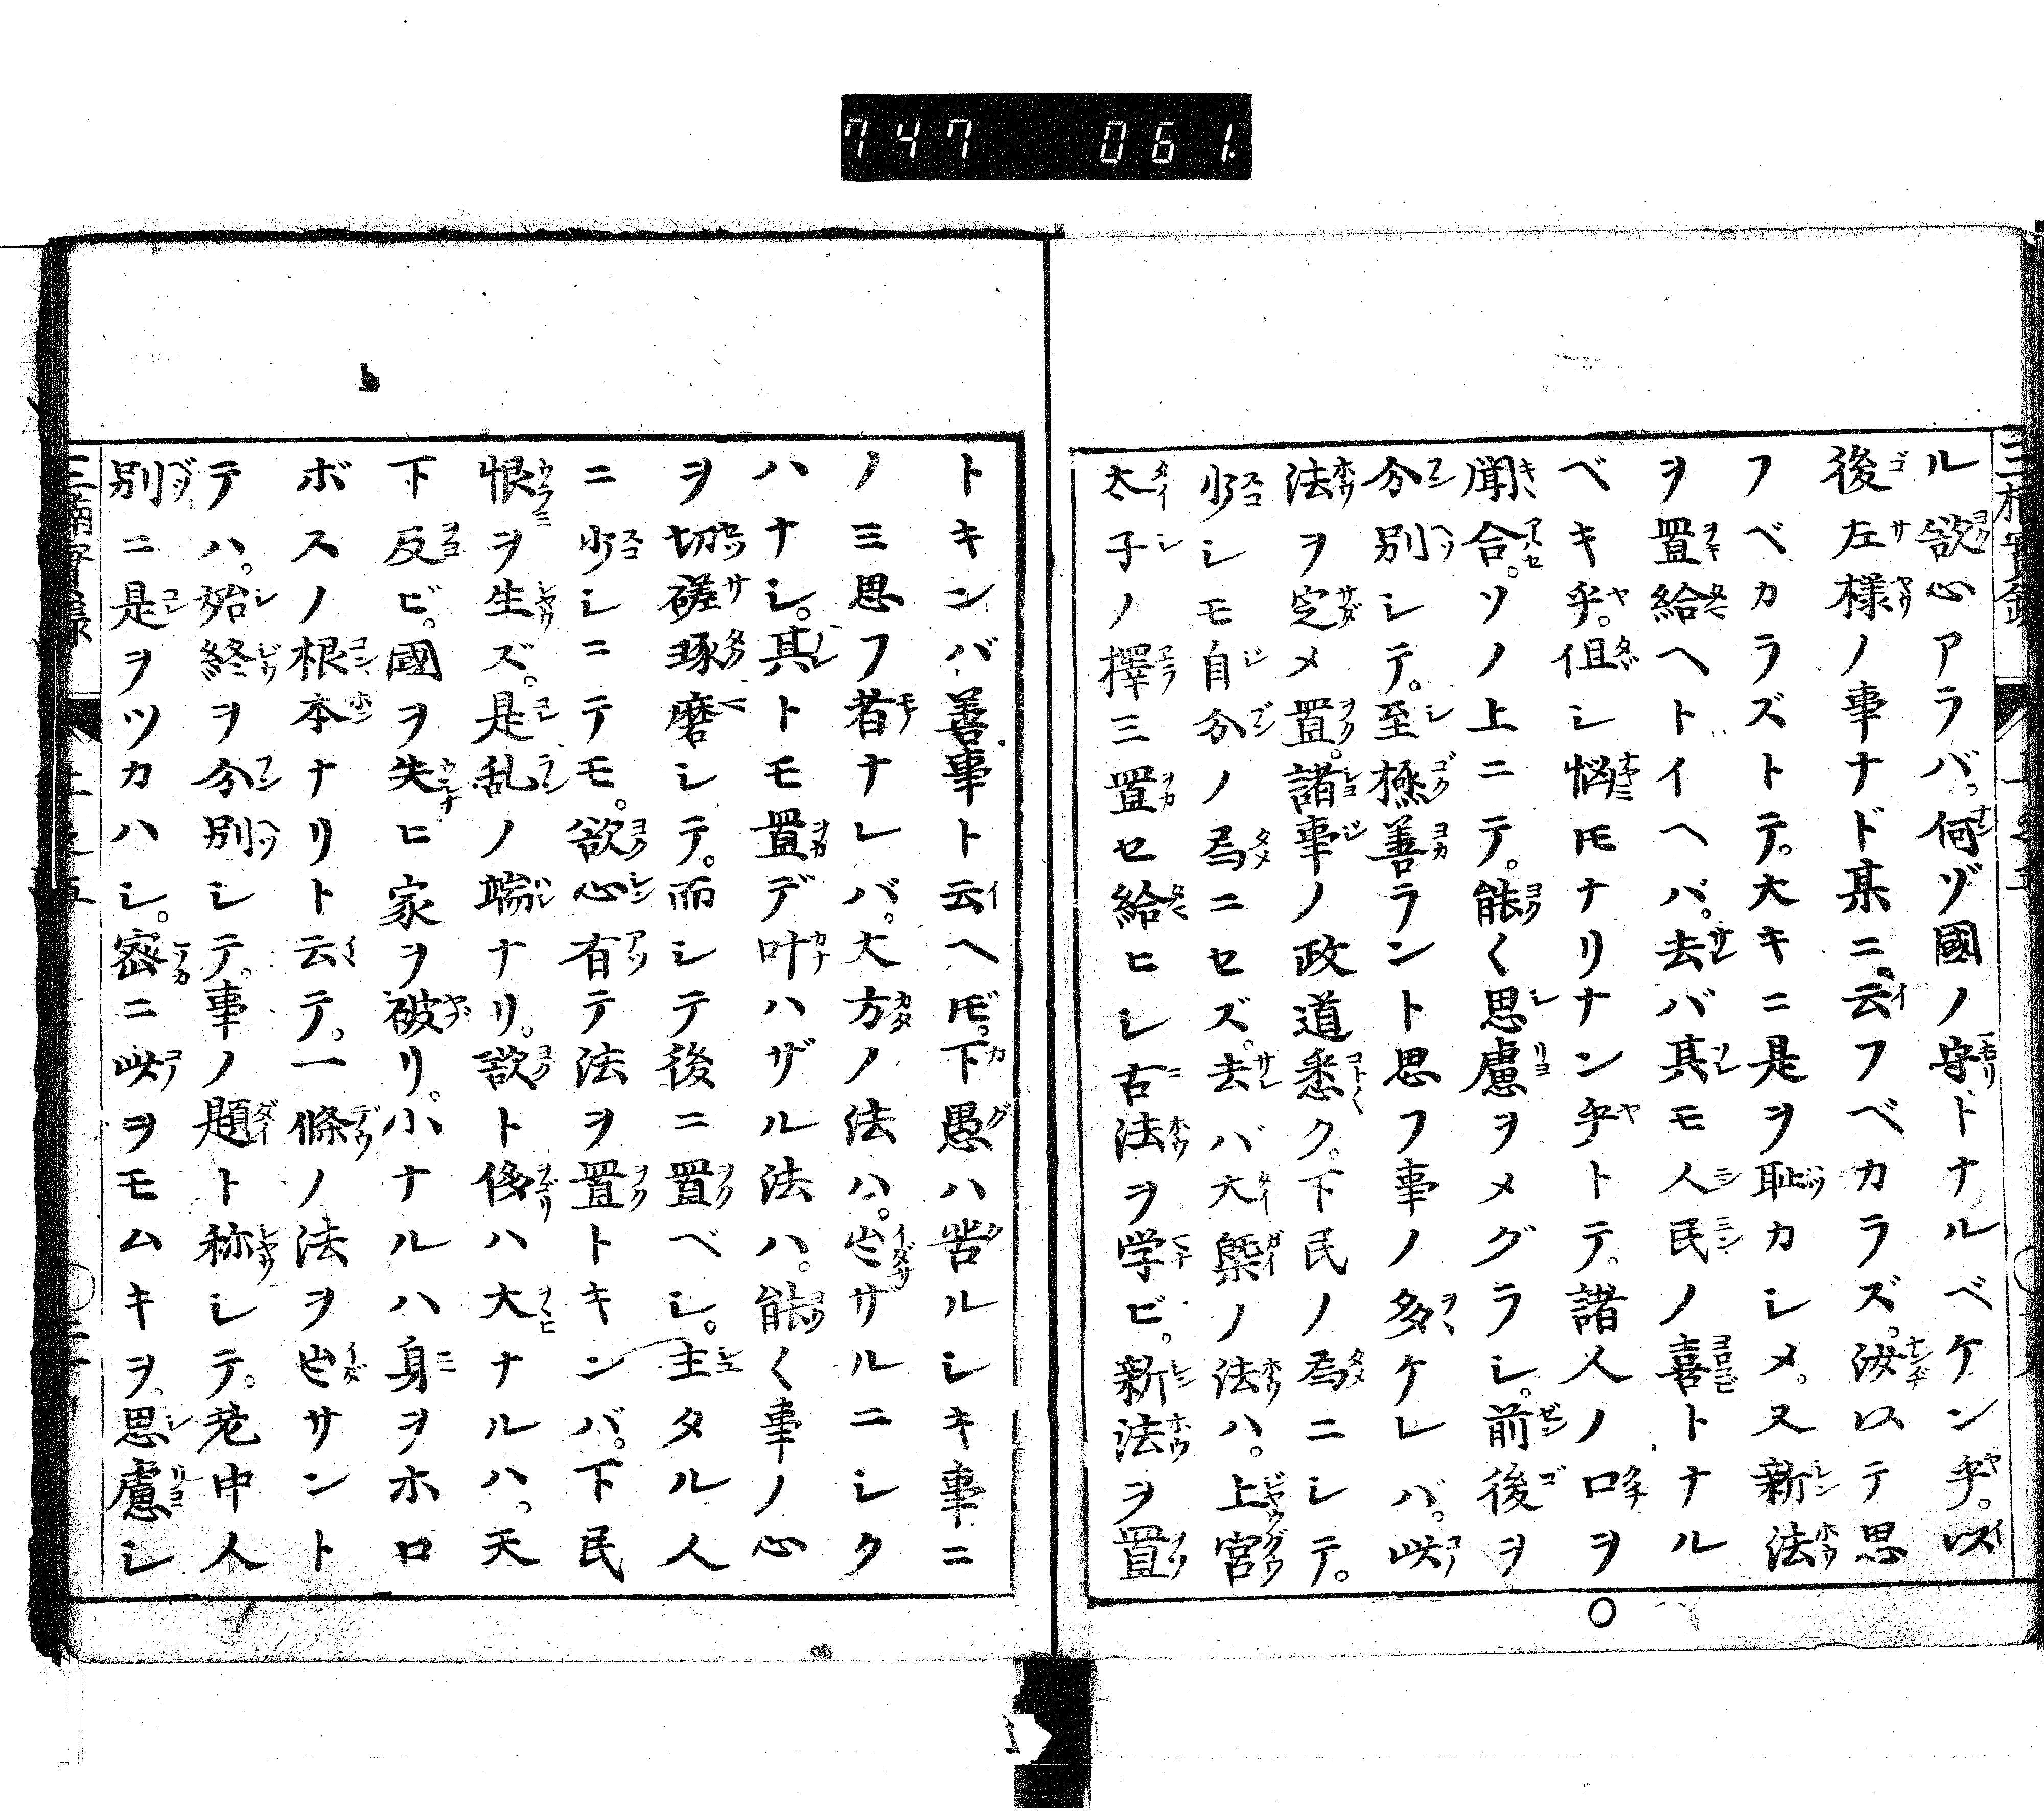 747 061.
ル欲心アラバ。何ゾ國ノ守ドナルベケン乎。以
後左様ノ事ナド某ニ云フベカラズ。汝以テ思
フベカラズトテ。大キニ是ヲ耻カシメ。又新法
ヲ置給ヘトイヘバ。去バ其モ人民ノ喜トナル
ベキ乎。但シ悩𪜈ナリナン乎トテ。諸人ノ口ヲ
聞合。ソノ上ニテ。能く思慮ヲメグラシ。前後ヲ
分別シテ。至極善ラント思フ事ノ多ケレバ。此
法ヲ定メ置。諸事ノ政道悉ク。下民ノ為ニシテ。
少シモ自分ノ為ニセズ。去バ大槩ノ法ハ。上宮
太子ノ擇ミ置セ給ヒシ古法ヲ学ビ。新法ヲ置
トキンバ善事ト云ヘ𪜈。下愚ハ苦ルシキ事ニ
ノミ思フ者ナレバ。大方ノ法ハ。出サザルニシク
ハナシ。其トモ置デ叶ハザル法ハ。能く事ノ心
ヲ切磋琢磨シテ。而シテ後ニ置ベシ。主タル人
ニ少シニテモ。欲心有テ法ヲ置トキンバ。下民
恨ヲ生ズ。是乱ノ端ナリ。欲ト侈ハ大ナルハ。天
下反ビ。國ヲ失ヒ家ヲ破リ。小ナルハ身ヲホロ
ボスノ根本ナリト云テ。一條ノ法ヲ出サント
テハ。始終ヲ分別シテ。事ノ題ト称シテ。老中人
別ニ是ヲツカハシ。密ニ此ヲモムキヲ。思慮シ